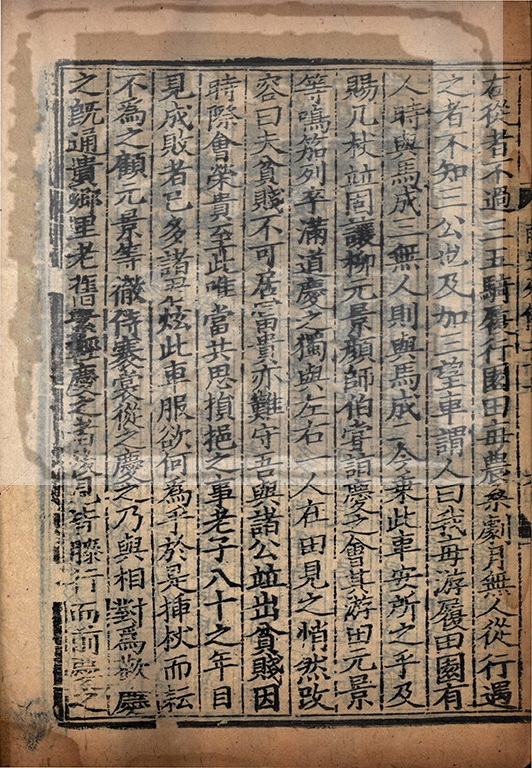 右從者不過三五騎履行園田每農桑劇月無人從行遇
之者不知三公也及加三望車謂人曰我每游履田園有
人時與馬成三無人則與馬成二今乘此車安所之乎及
賜几杖並固讓柳元景顔師伯嘗詣慶之會其游田元景
等鳴笳列卒滿道慶之獨與左右一人在田見之悄然改
容曰夫貧賤不可居富貴亦難守吾與諸公並出貧賤因
時際會榮貴至此唯當共思損挹之事老子八十之年目
見成敗者已多諸君炫此車服欲何為乎於是插杖而耘
不為之顧元景等徹侍褰裳從之慶之乃與相對為歡慶
之既通貴鄉里老舊素輕慶之者後見皆膝行而前慶之